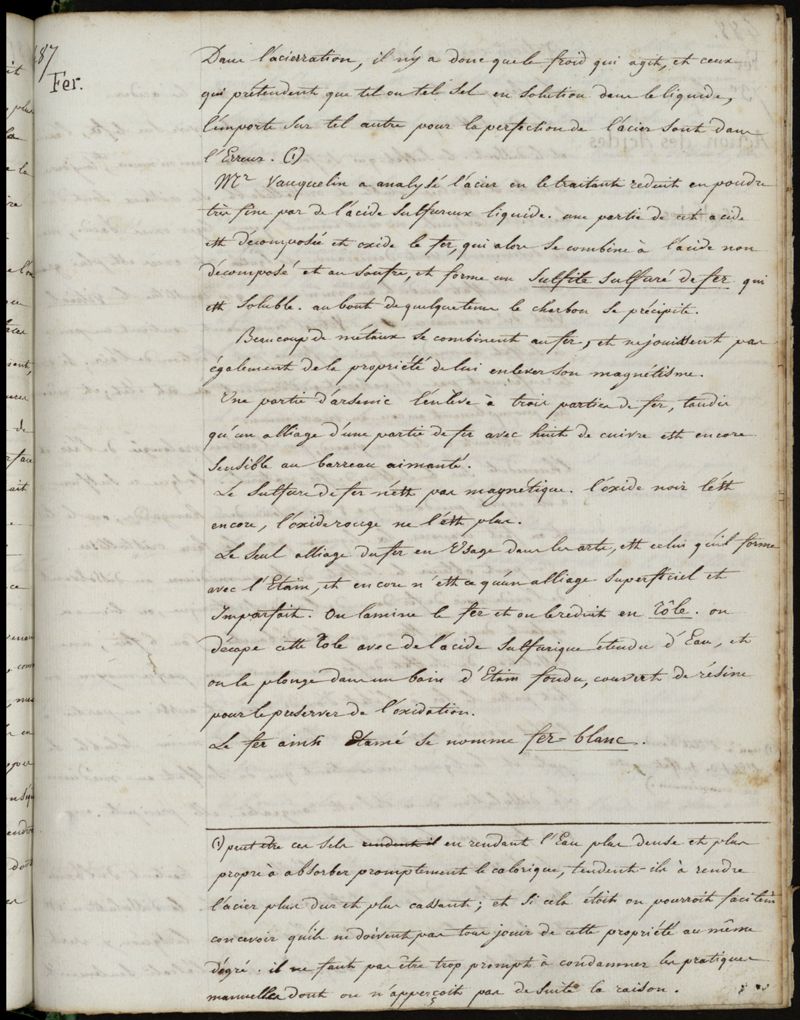 487
Fer.
Dans l'acierration, il n'y a donc que le froid qui agit, et ceux
qui prétendent que tel ou tel sel en solution dans le liquide,
l'emporte sur tel autre pour la perfection de l'acier sont dans
l'Erreur. (1)
Mr Vauquelin a analysé l'acier en le traitant reduit en poudre
très fine par de l'acide sulfureux liquide. une partie de cet acide
est décomposée et oxide le fer, qui alors se combine à l'acide non
décomposé et au soufre, et forme un sulfite sulfuré de fer qui
est soluble. au bout de quelque tems le charbon se précipite.
Beaucoup de métaux se combinent au fer, et ne jouissent pas
également de la propriété de lui enlever son magnétisme.
Une partie d'arsenic l'enlève à trois parties de fer, tandis
qu'un alliage d'une partie de fer avec huit de cuivre est encore
sensible au barreau aimanté.
Le Sulfure de fer n'est pas magnétique. l'oxide noir l'est
encore, l'oxide rouge ne l'est plus.
Le seul alliage du fer en Usage dans les arts, est celui qu'il forme
avec l'Etain, et encore n'est ce qu'un alliage superficiel et
Imparfait. On lamine le fer et on le reduit en tôle. on
décape cette tole avec de l'acide sulfurique étendu d'Eau, et
on la plonge dans un bain d'Etain fondu, couvert de résine
pour le preserver de l'oxidation.
Le fer ainsi Etamé se nomme fer-blanc.
(1) peut être ces sels rendent il en rendant l'Eau plus dense et plus
propre à absorber promptement le calorique, tendent-ils à rendre
l'acier plus dur et plus cassant; et si cela étoit on pourroit facilem
concevoir qu'ils ne doivent pas tous jouir de cette propriété au même
dégré. il ne faut pas être trop prompt à condamner les pratiques
manuelles dont on n'apperçoit pas de suite la raison.